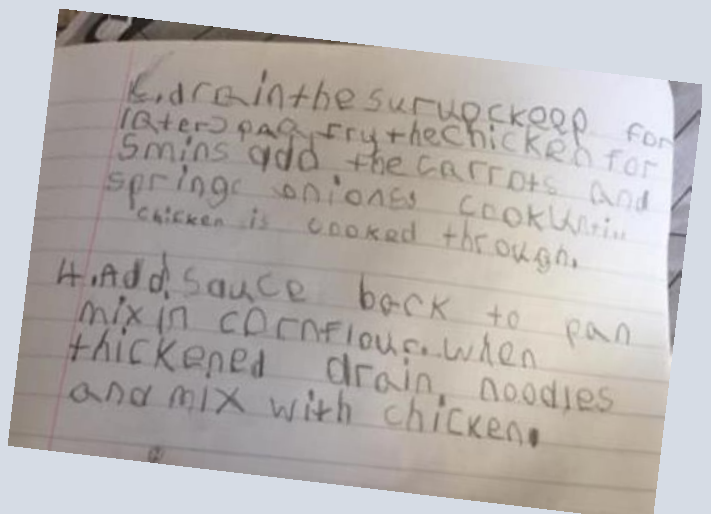 drain the surup (keep for
later) pan fry the chicken for
5mins add the carrots and
spring onions cook until
chicken is cooked through.
4. Add sauce back to pan
mix in cornflour. when
thickened drain noodles
and mix with chicken.